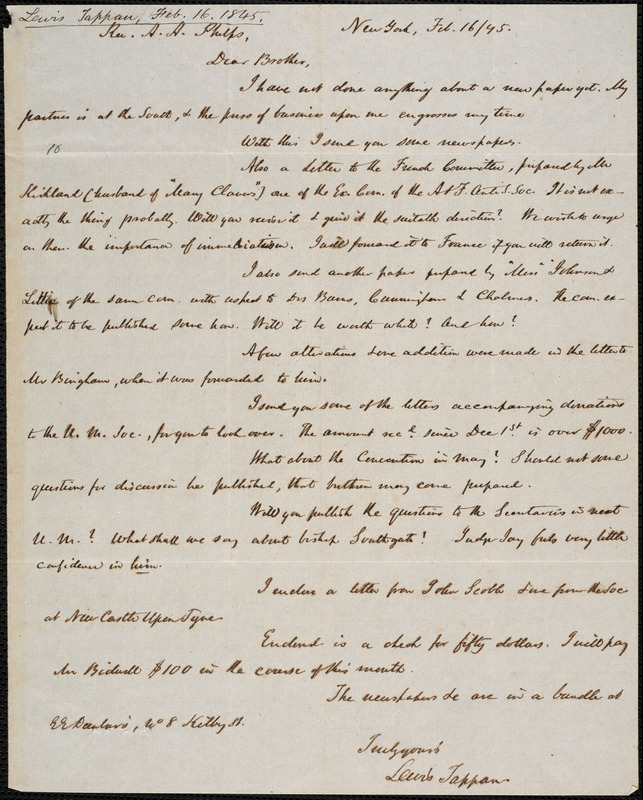 Lewis Tappan, Feb. 16. 1845.
Rev. A. A. Phelps, New York, Feb. 16/45.
Dear Brother,
I have not done anything about a new paper yet. My
partner is at the South, & the press of business upon me engrosses my time
With this I send you some newspapers.
10
Also a Letter to the French Committee, prepared by Mr
Kirkland (husband of "Mary Clavers") one of the Ex. Com. of the A & F. Anti S. Soc. It is not ex-
actly the thing probably. Will you revise it & give it the suitable direction? We wish to urge
on them the importance of immediatism. I will forward it to France if you will return it.
I also send another paper prepared by "Miss" Johnson &
of the same com. with respect to Drs Burns, Cunningham & Chalmers. The com. ex-
pect it to be published some how. Will it be worth while? And how?
A few alterations & one addition were made in the letter to
Mr Bingham, when it was forwarded to him.
I send you some of the letters accompanying donations
to the U. M. Soc., for you to look over. The amount recd. since Dec 1st is over $1000.
What about the Convention in May? Should not some
questions for discussion be published, that brethren may come prepared.
Will you publish the questions to the Secretaries in next
U. M.? What shall we say about bishop Southgate? Judge Jay feels very little
confidence in him.
I enclose a letter from John Scoble & one from the Soc
at New Castle Upon Tyne
Enclosed is a check for fifty dollars. I will pay
Mr Bidwell $100 in the course of this month.
The newspapers &c are in a bundle at
No 8 Kilby St.
Truly yours
Lewis Tappan